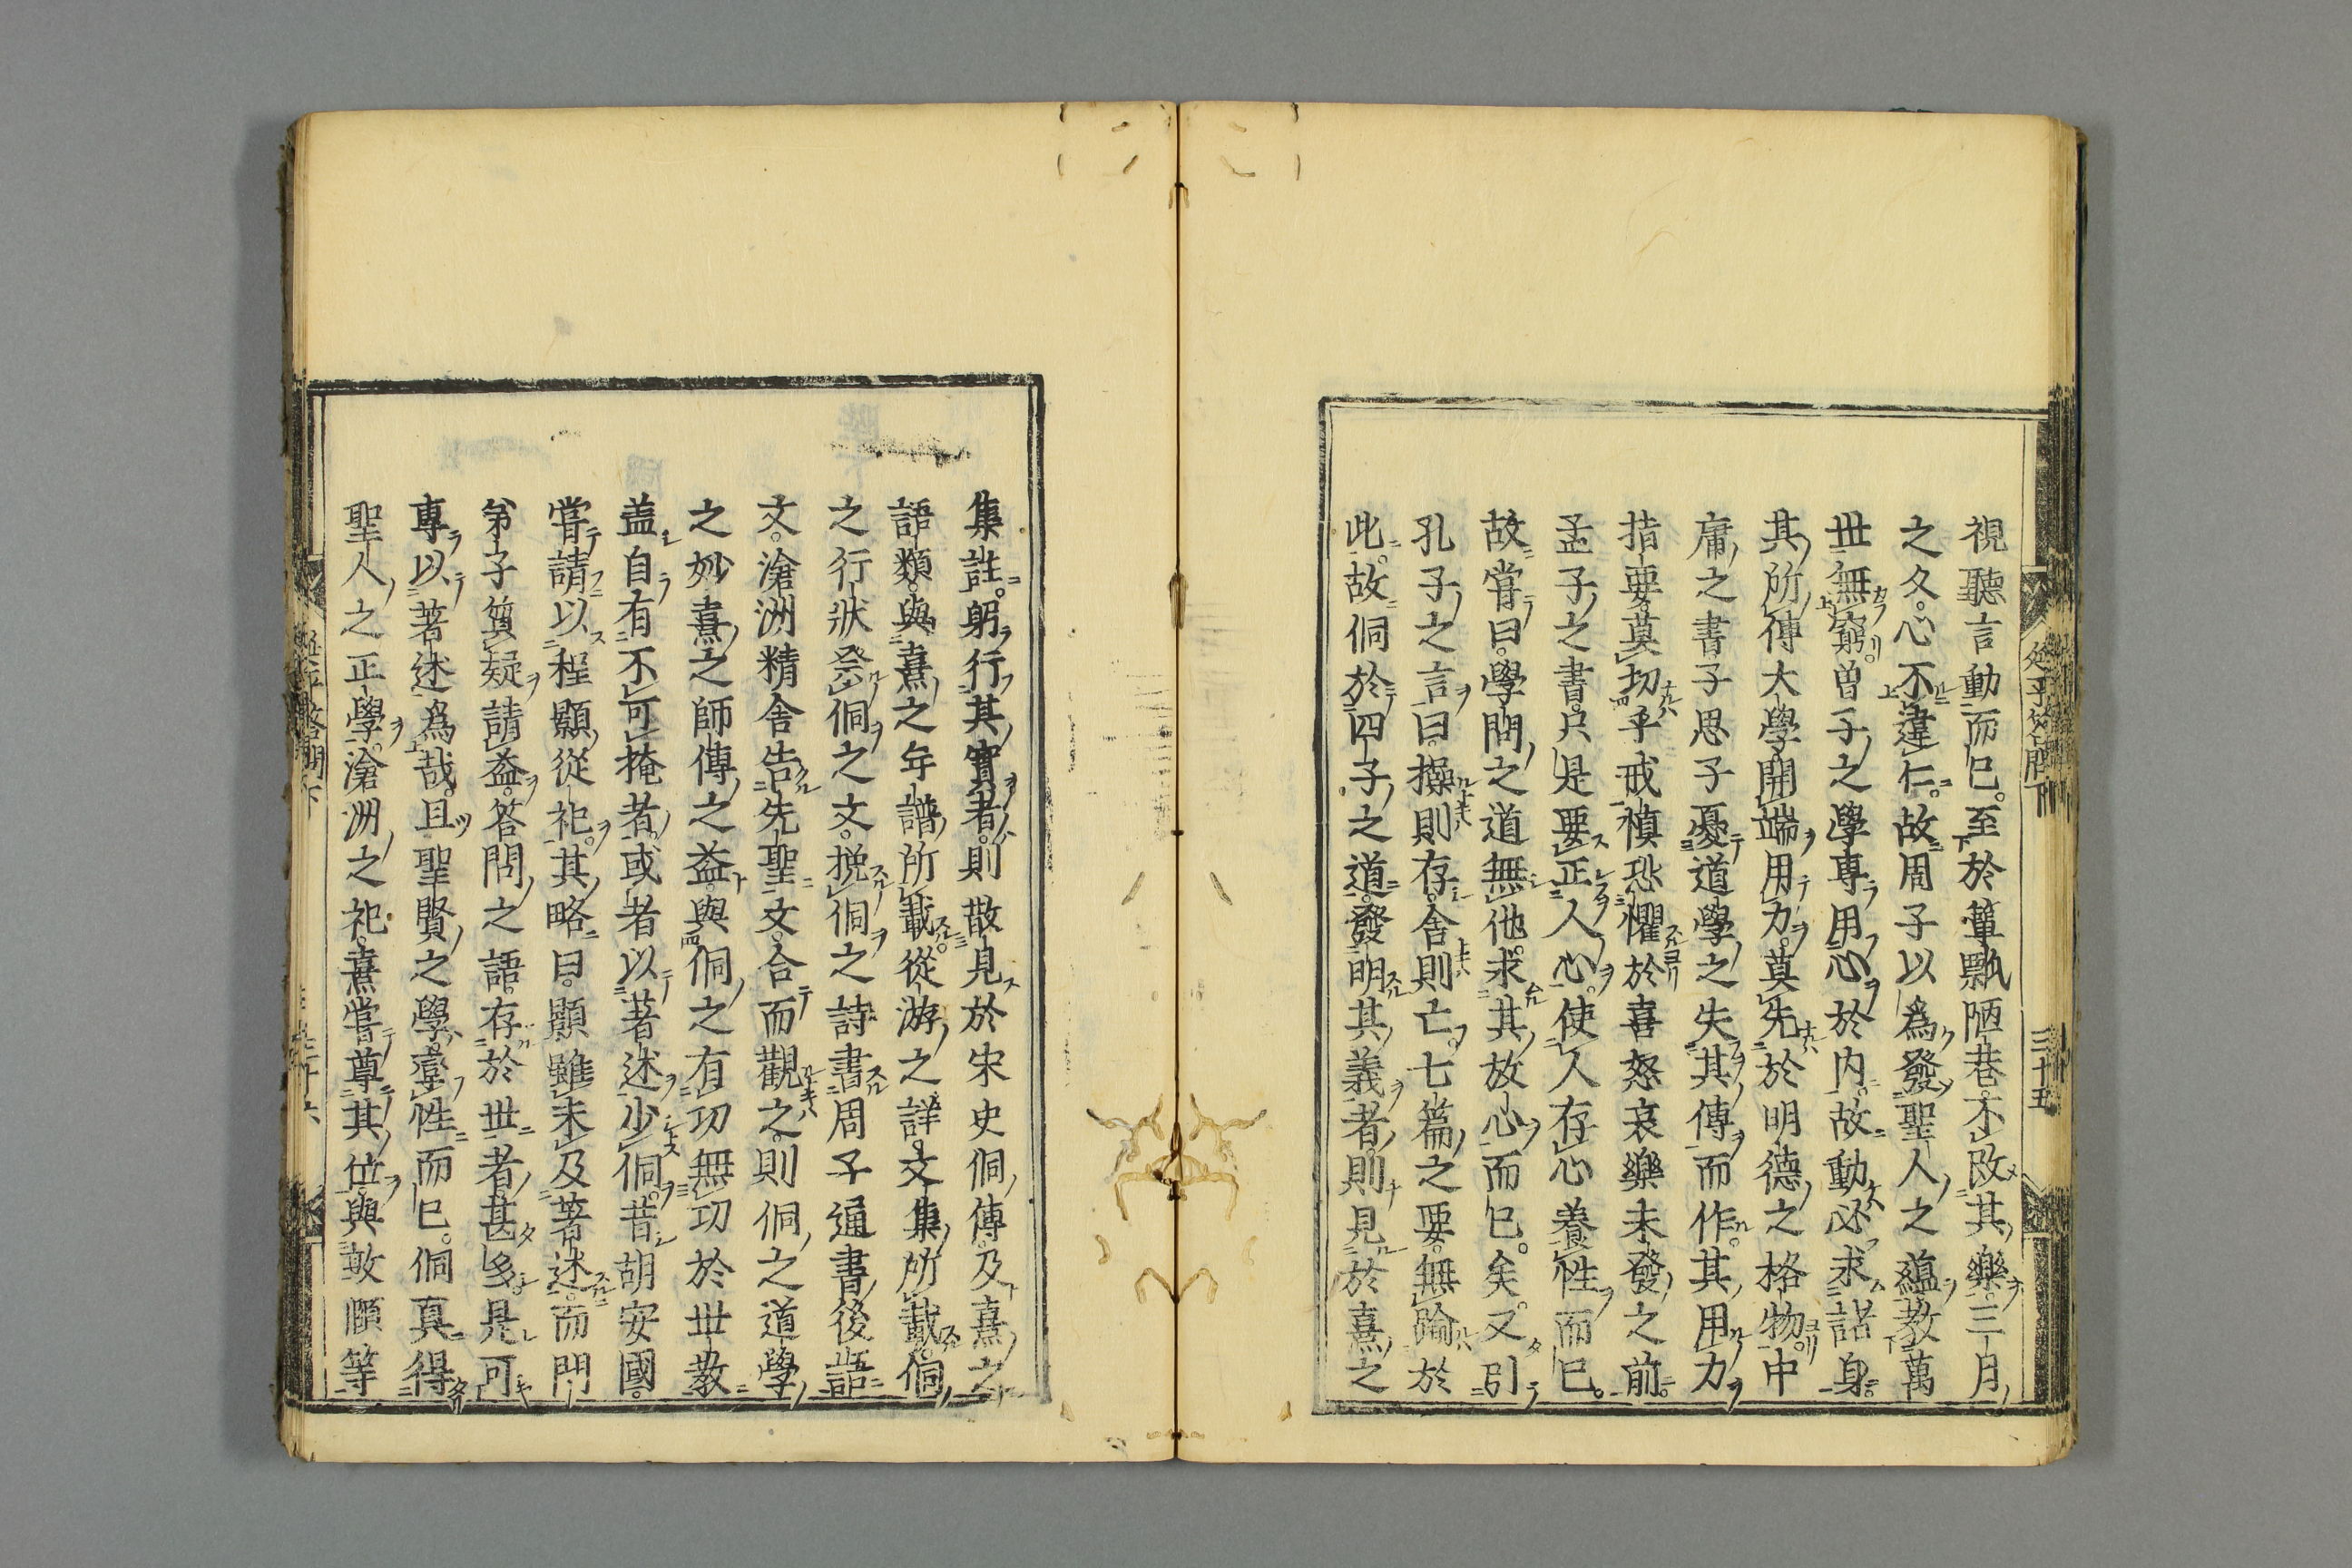 視聽言動而已。至於簞瓢陋巷。不改其樂。三月
之久。心不違仁。故周子以為發聖人之蘊教萬
世無窮。曽子之學專用心於内。故動必求諸身。
其所傳大學開端用力。莫先於明德之格物。中
庸之書。子思子憂道學之失其傳而作。其用力
指要。莫切乎戒慎恐懼於喜怒哀樂未發之前。
孟子之書。只是要正人心。使人存心養性而已。
故嘗曰。學問之道無他。求其放心而已矣。又引
孔子之言曰。操則存。舍則亡。七篇之要。無踰於
此。故侗於四子之道。發明其義者。則見於熹之
延平答問下
三十五
集註。躬行其實者。則散見於宋史侗傳。及熹之
語類。與熹之年譜所載從游之詳。文集所載。侗
之行狀祭侗之文。挽侗之詩書周子通書後語
文。滄洲精舍告先聖文。合而觀之。則侗之道學
之妙熹之師傳之益。與侗之有功無功於世教
盖自有不可掩者。或者以著述少侗。昔胡安國。
嘗請以程顥從祀。其略曰。顥雖未及著述。而門
弟子質疑請益。答問之語。存於世者甚多。是可
專以著述為哉。且聖賢之學。盡性而已。侗真得
聖人之正學。滄洲之祀。熹嘗尊其位與敦頤等
延平答問下
三十六